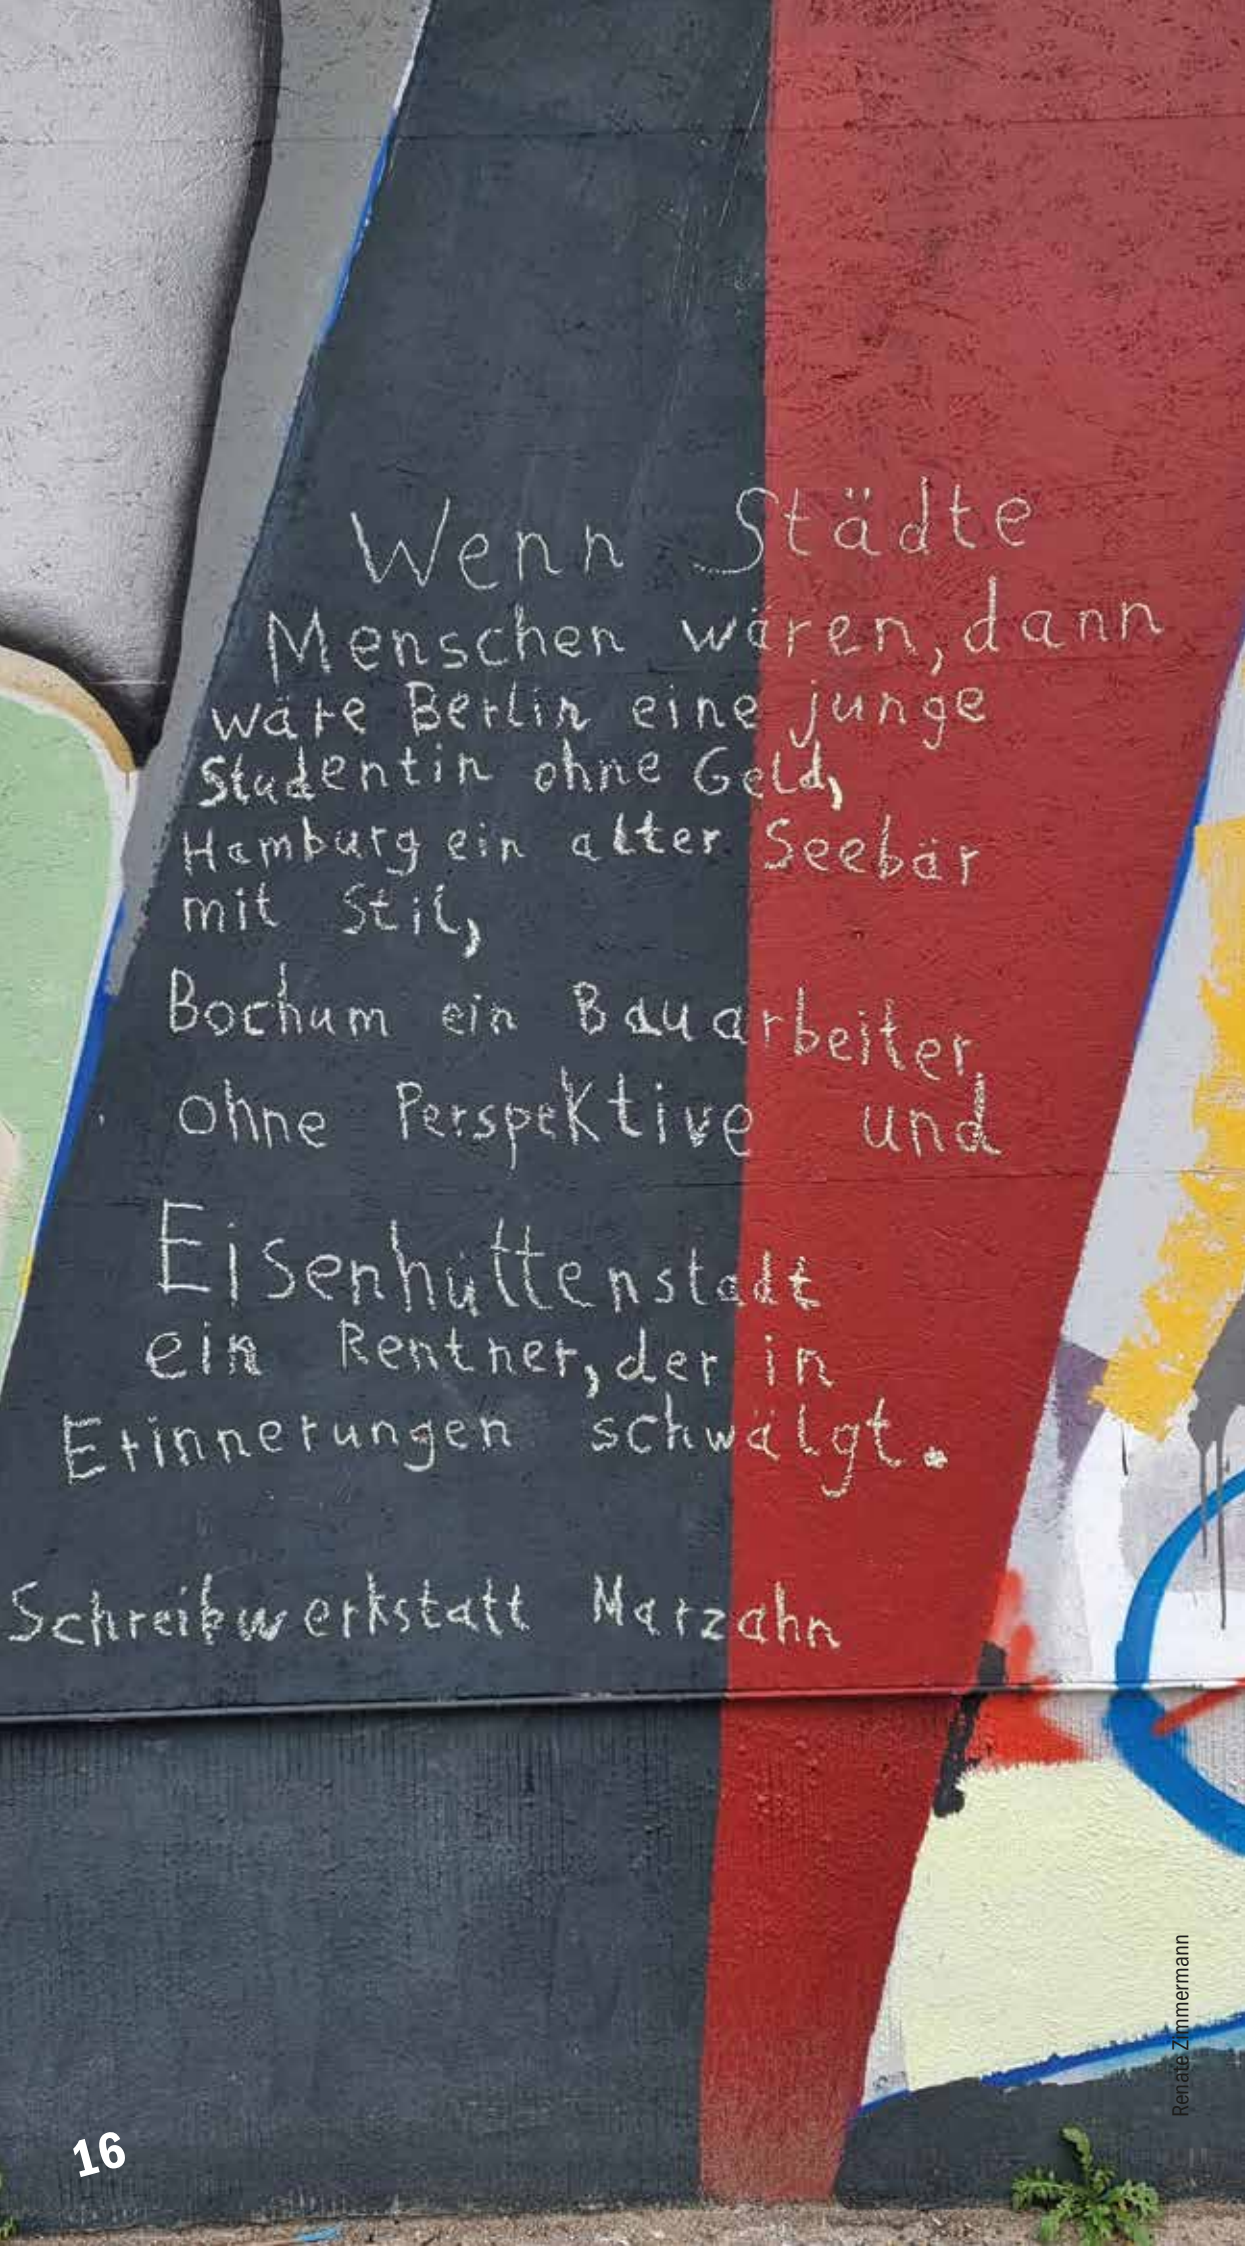 Wenn Städte
Menschen wären, dann
wäre Berlin eine junge
Studentin ohne Geld,
Hamburg ein alter Seebär
mit Stil,
Bochum ein Bauarbeiter
ohne Perspektive und
Eisenhüttenstadt
ein Rentner, der in
Erinnerungen schwälgt.
Schreibwerkstatt Marzahn
Renate Zimmermann
16